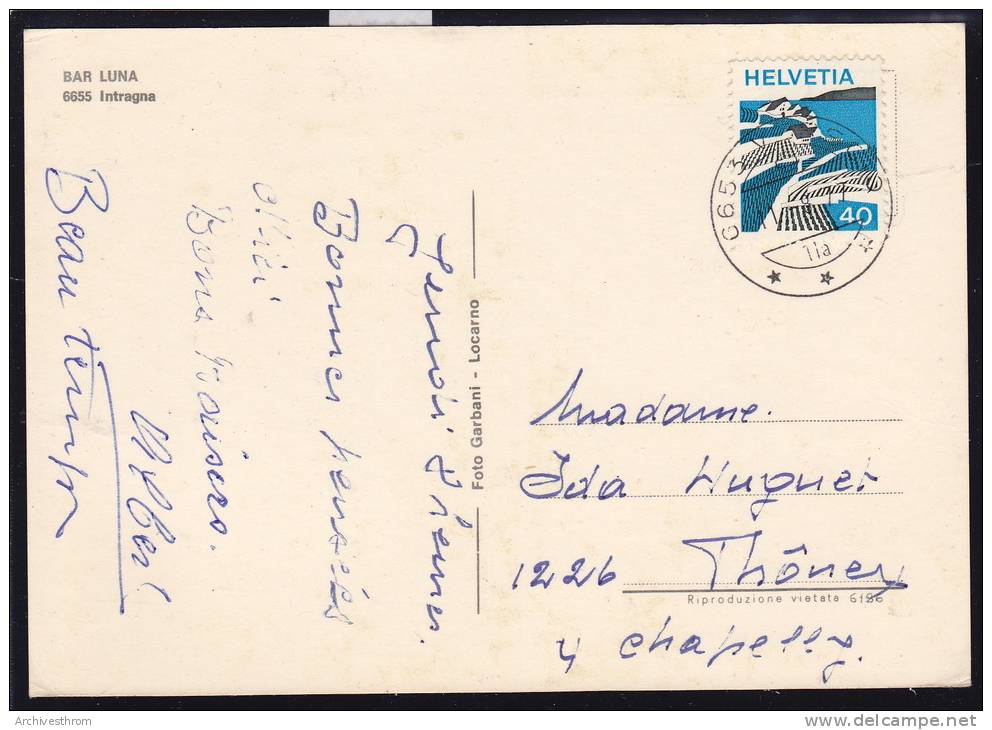 BAR LUNA
6655 Intragna
HELVETIA
40
6653
11a
Bonnes pensées
Bons baisers.
Beau temps
Foto Garbani - Locarno
Madame.
Ida Huguet
1226 Thônex
Riproduzione vietata 6196
4 chapelly.
Archivesthrom
www.delcampe.net